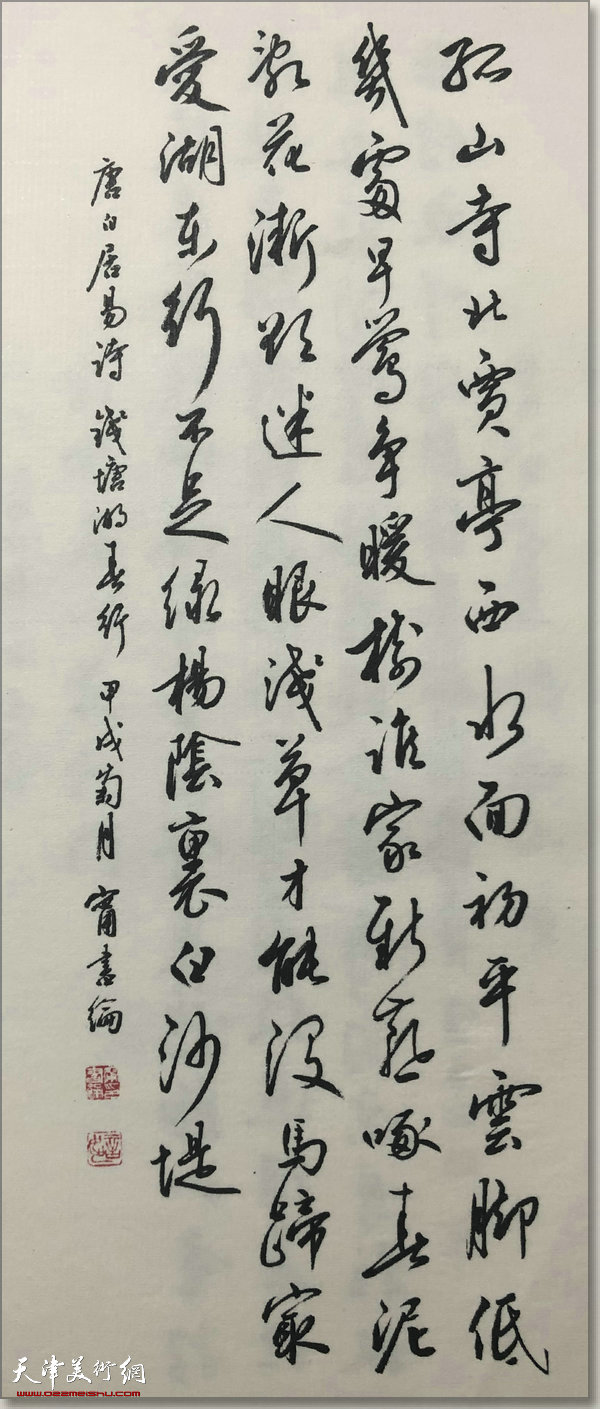 孤山寺北賈亭西水面初平雲脚低
幾處早鶯争暖樹誰家新燕啄春泥
亂花漸欲迷人眼淺草才能没馬蹄最
愛湖东行不足绿楊陰裏白沙堤
唐白居易诗 錢塘湖春行 甲戌菊月 甯書綸
天津美術網
www.022meishu.com